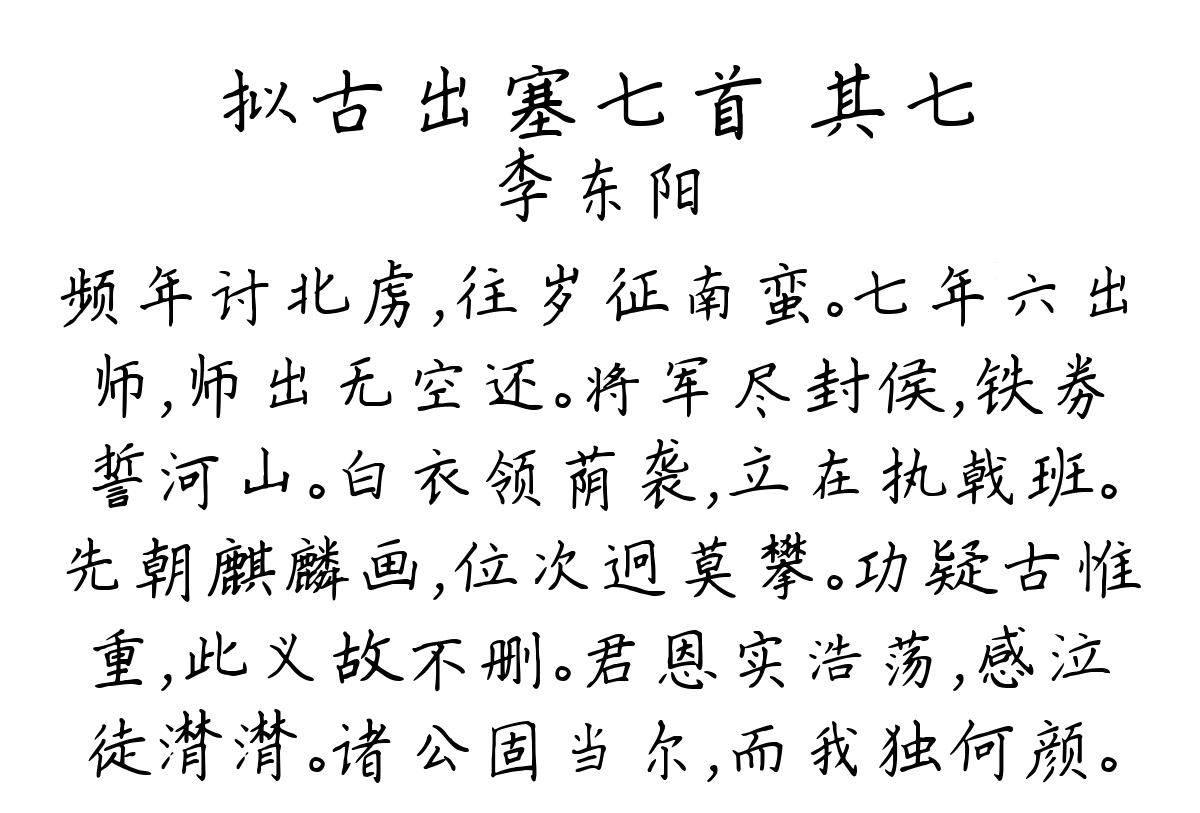 拟古出塞七首 其七
李东阳
频年讨北虏,往岁征南蛮。七年六出
师,师出无空还。将军尽封侯,铁券
誓河山。白衣领荫袭,立在执戟班。
先朝麒麟画,位次迥莫攀。功疑古惟
重,此义故不删。君恩实浩荡,感泣
徒潸潸。诸公固当尔,而我独何颜。